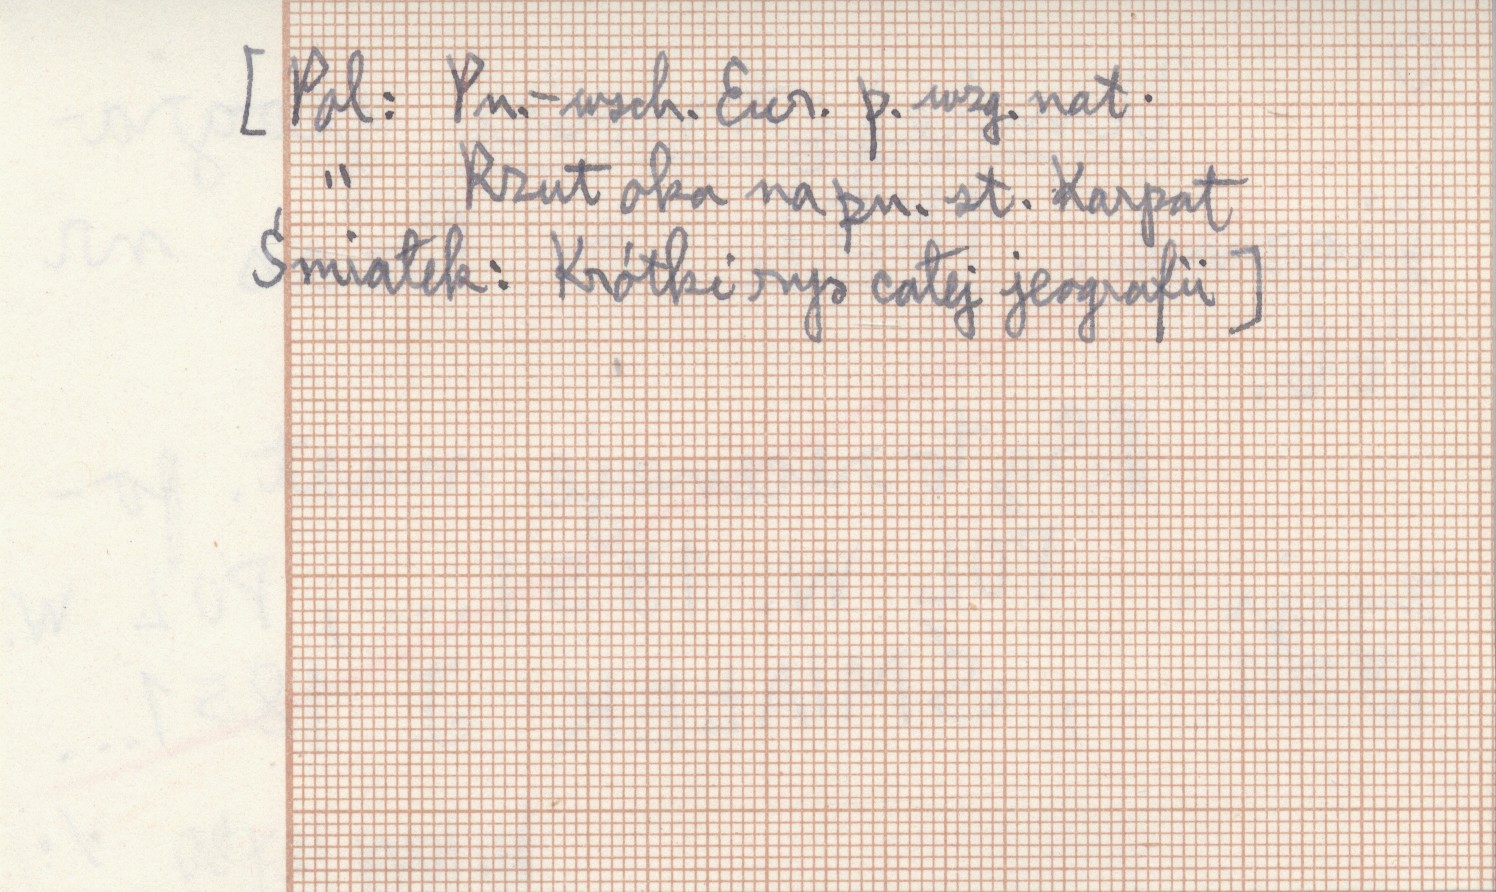 [Pol: Pn.-wsch. Eur. p. wzg. nat.
" Rzut oka na pn. st. Karpat
Śmiałek: Krótki rys całej jeografii]